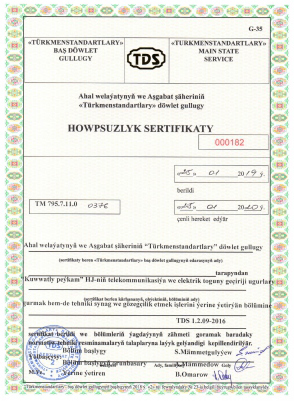 G-35
«TÜRKMENSTANDARTLARY»
BAŞ DÖWLET
GULLUGY
TDS
«TURKMENSTANDARTLARY»
MAIN STATE
SERVICE
Ahal welaýatynyň we Aşgabat şäheriniň
«Türkmenstandartlary» döwlet gullugy
HOWPSUZLYK SERTIFIKATY
000182
«25» 01 2019 ý.
berildi
TM 795.7.11.0 0376
«25» 01 2020 ý.
çenli hereket edýär
Ahal welaýatynyň we Aşgabat şäheriniň "Türkmenstandartlary" döwlet gullugy
(sertifikaty beren «Türkmenstandartlary» baş döwlet gullugynyň edarasynyň ady)
tarapyndan
"Kuwwatly peýkam" HJ-niň telekommunikasiýa we elektrik toguny geçiriji ugurlary
(sertifikat berlen kärhananyň, obýektiniň, bölüminiň ady)
gurmak hem-de tehniki synag we gözegçilik etmek işlerini ýerine ýetirýän bölümine
TDS 1.2.09-2016
sertifikat berildi we bölümleriň ýagdaýynyň zähmeti goramak baradaky
normatiw-tehniki resminamalaryň talaplaryna laýyk gelýändigi kepillendirilýär.
Bölüm başlygy S.Mämmetgulyýew
Bölüm başlygynyň orunbasary
M.Ýe. Ýerine ýetiren B.Omarow